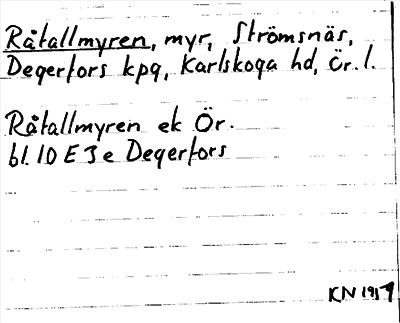 Råtallmyren, myr, Strömsnäs,
Degerfors kpg, Karlskoga hd, Ör. l.
Råtallmyren ek Ör.
bl. 10 E 3 e Degerfors
KN 1917